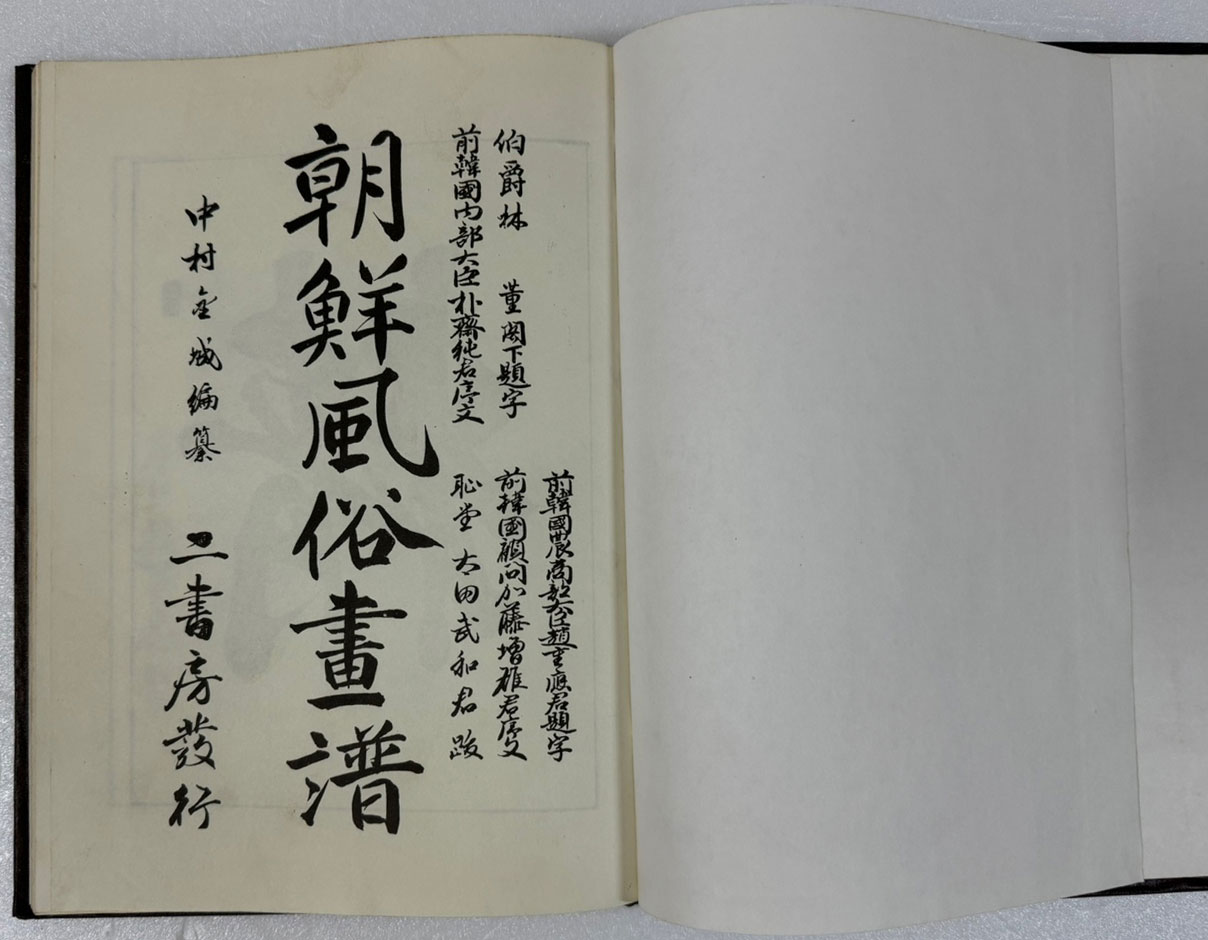 前韓國農商部大臣趙重應君題字
伯爵林 董閣下題字
前韓國顧問加藤增雄君序文
前韓國内部大臣朴齊純君序文
恥堂太田武和君跋
朝鮮風俗畫譜
中村金城編纂
二書房發行